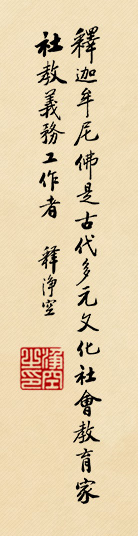 釋迦牟尼佛是古代多元文化社會教育家
社教義務工作者 釋淨空
淨空之印